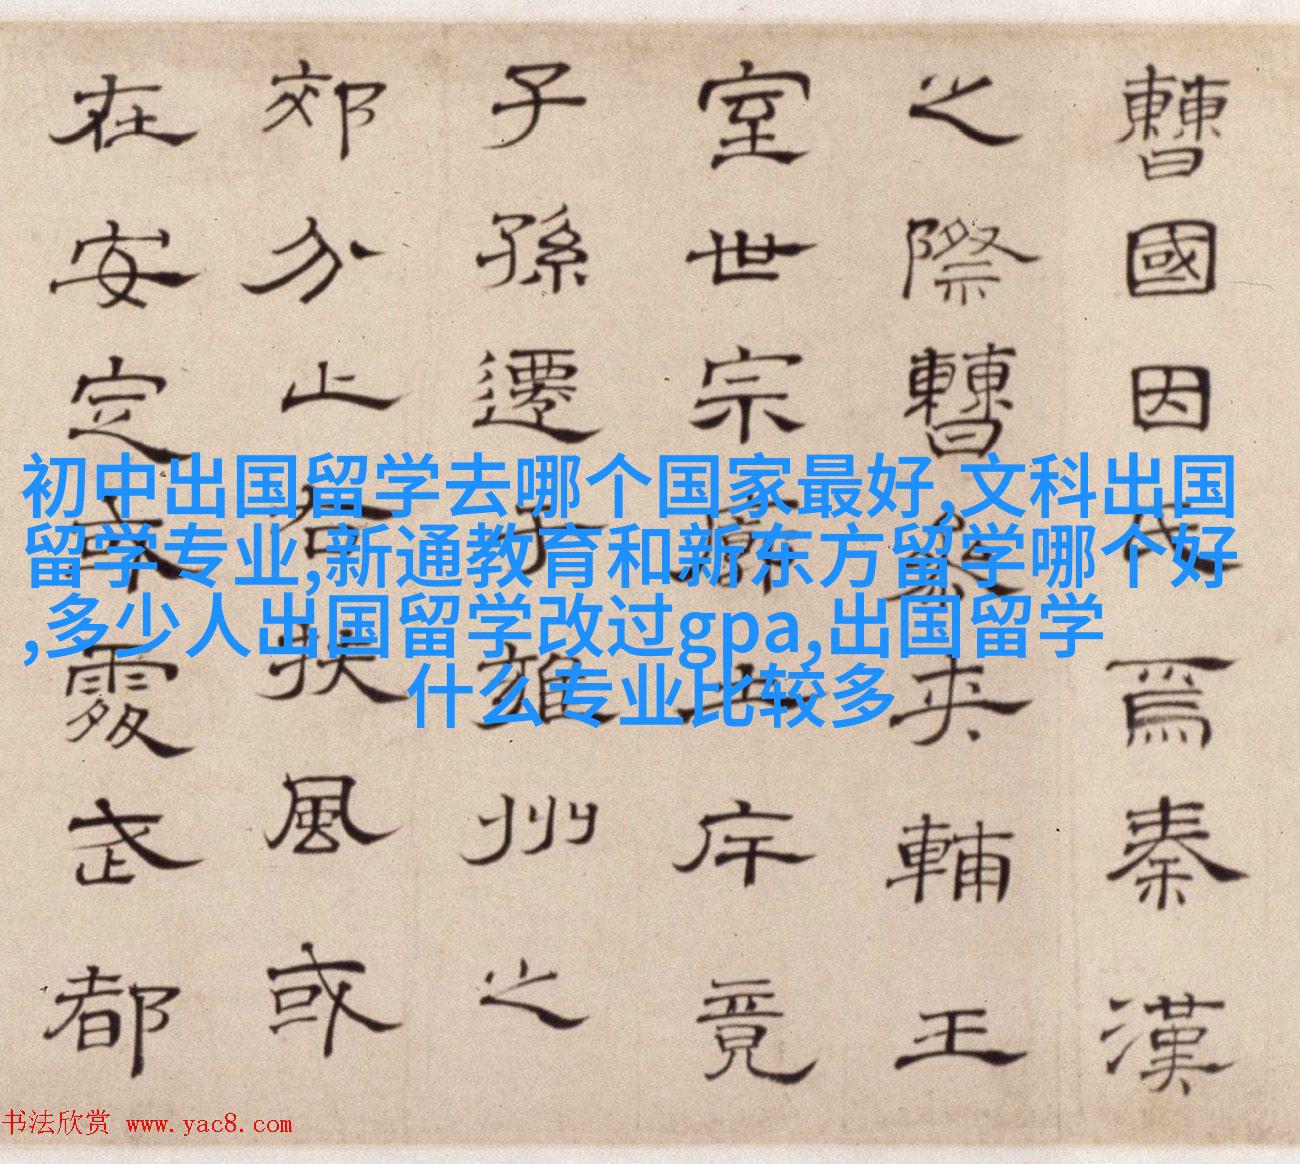 曹國因氏焉秦漢
之際曹參夾輔王
室世宗廓土斥竟
子孫遷于雍州之
郊分止右扶風或
在安定或處武都
初中出国留学去哪个国家最好,文科出国
留学专业,新通教育和新东方留学哪个好
,多少人出国留学改过gpa,出国留学
什么专业比较多
书法欣赏 www.yac8.com